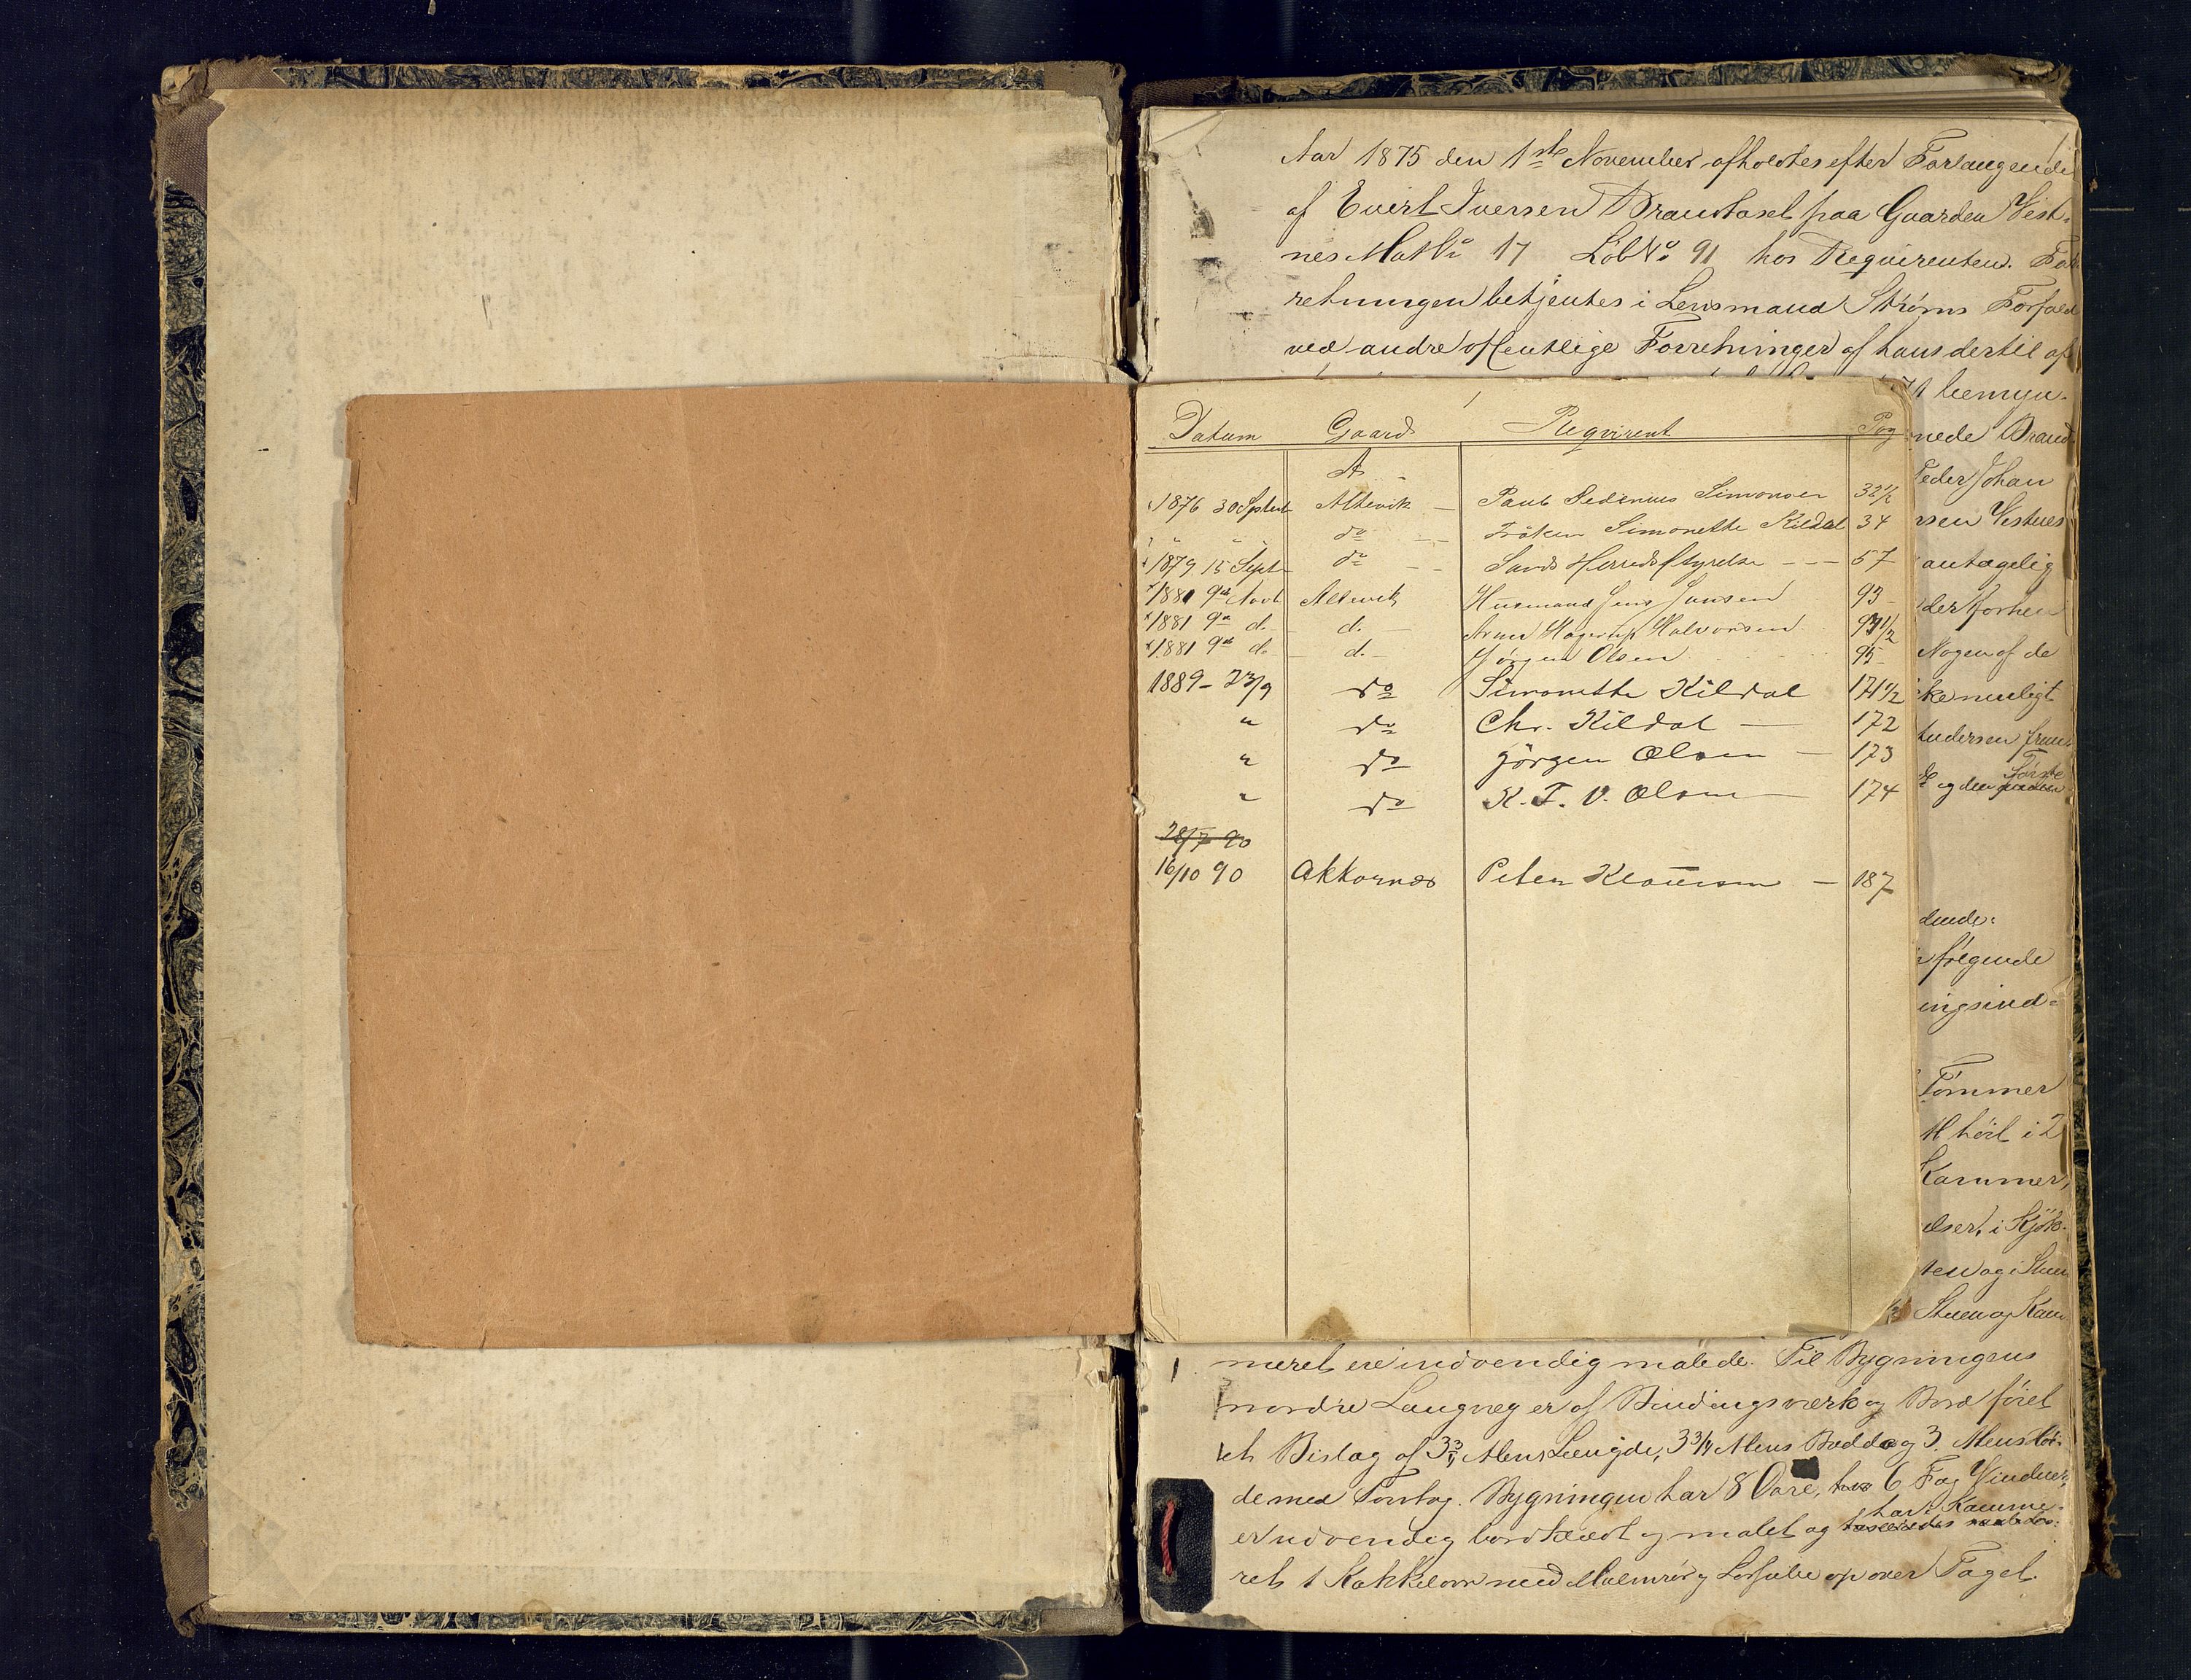 Aar 1875 den 1ste November afholdtes efter Forlangende
af Evert Iversen Brandtaxt paa Gaarden Vest-
nes Mat No 17 Løb No 91 hos Requirenten. For
retningen betjentes i Lensmand Strøms Forfald
ved andre offentlige Forretninger af hans dertil af
1
Datum Gaard Reqvirent Pag
A
1876 30 Septbr Altevik Paul Pedinius Simonsen 32 1/2
" " " do Frøken Simonette Kildal 34
1879 15 Sept do Sands Herredsstyrelse 57
1881 9de Novb Altevik Husmand Jens Jansen 93
1881 9de d. d. Arnt Hagerup Halvorsen 93 1/2
1881 9de do d. Jørgen Olsen 95
1889 - 23/9 do Simonette Kildal 171 1/2
" do Chr. Kildal 172
" do Jörgen Olsen 173
" do K. T. V. Olsen 174
28/7 90
16/10 90 Akkornæs Peter Klausen 187
bemyn-
nede Brand
Peder Johan
rsen Vestnes
antagelig
der forhen
Nogen af de
ke muligt
Andersen frem
og den første
dende:
følgende
ingsind-
Tømmer
Al høit i 2
Kammer,
elser, i Kjøk-
ten og i Stuen
Stuen og Kam
1 meret ere indvendig malede. Til Bygningens
nordre Langvæg er af Bindingsværk og Bord føiet
et Bislag af 3 3/4 Alens Længde, 3 3/4 Alens Bredde og 3 Alens Høi-
de med Torvtag. Bygningen har 8 Døre, 6 Fag Vinduer,
er udvendig bordklædt og malet og har i Kamme-
ret 1 Kakkelovn med Malmrør og Lersuler op over Taget.